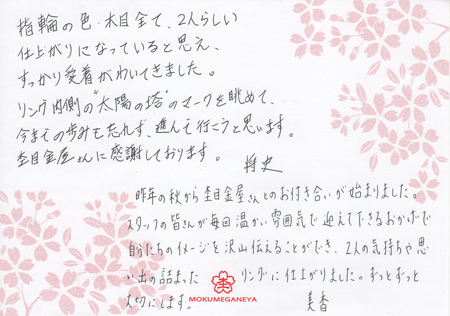 指輪の色・木目全て、2人らしい
仕上がりになっていると思え、
すっかり愛着がわいてきました。
リング内側の"太陽の塔"のマークを眺めて、
今までの歩みも忘れず、進んで行こうと思います。
杢目金屋さんに感謝しております。
将史
昨年の秋から杢目金屋さんとのお付き合いが始まりました。
スタッフの皆さんが毎回温かい雰囲気で迎えて下さるおかげで
自分たちのイメージを沢山伝えることができ、2人の気持ちや思
い出の詰まった リングに仕上がりました。ずっとずっと
大切にします。
美香
MOKUMEGANEYA